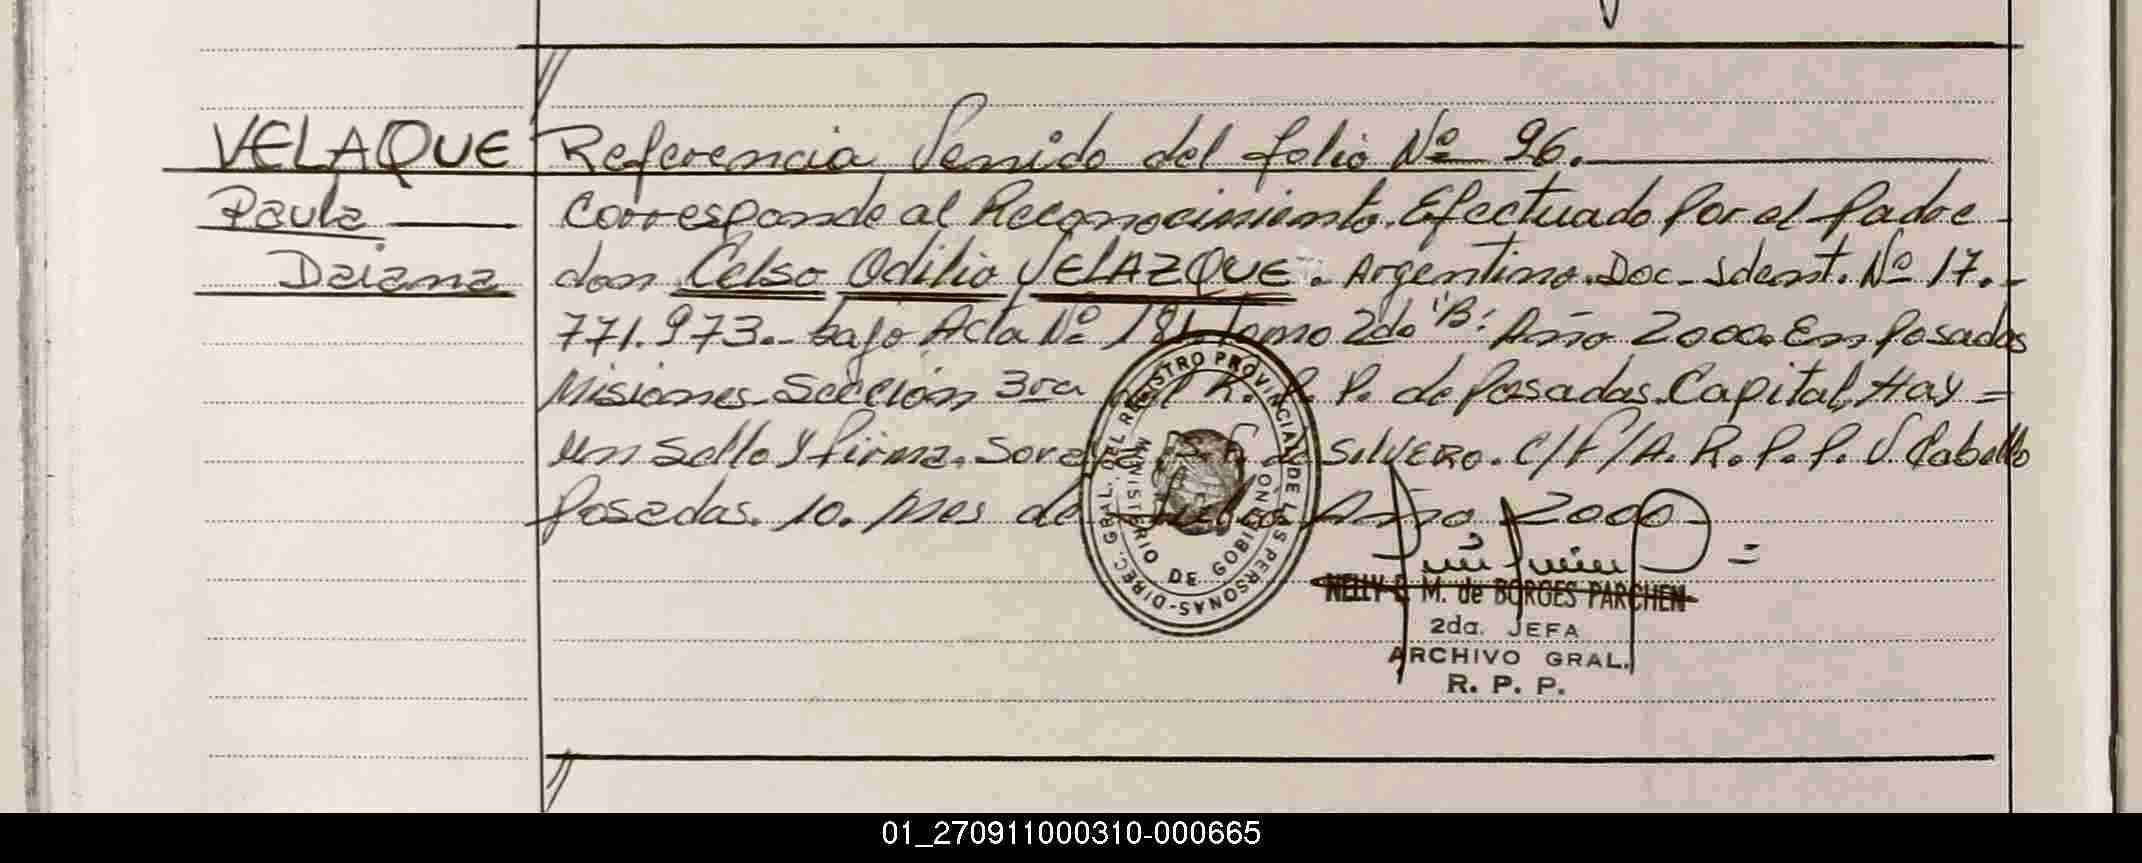 VELAQUE
Paula
Daiana
Referencia Venido del folio Nº 96.
Corresponde al Reconocimiento. Efectuado Por el Padre
don Celso Odilio VELAZQUE. Argentino. Doc. Ident. Nº 17.-
771.973.- bajo Acta Nº 181. Tomo 2do "B". Año 2000. En Posadas
Misiones. Sección 3ra del R. P. P. de Posadas. Capital, Hay =
un Sello y firma. de SILVERO. C/F/A. R. P. P. V. Cabello
Posadas. 10. Mes de Año 2000
DIREC. GRAL. DEL REGISTRO PROVINCIAL DE LAS PERSONAS-
MINISTERIO DE GOBIERNO
NELLY E. M. de BORGES PARCHEN
2da. JEFA
ARCHIVO GRAL.
R. P. P.
01_270911000310-000665